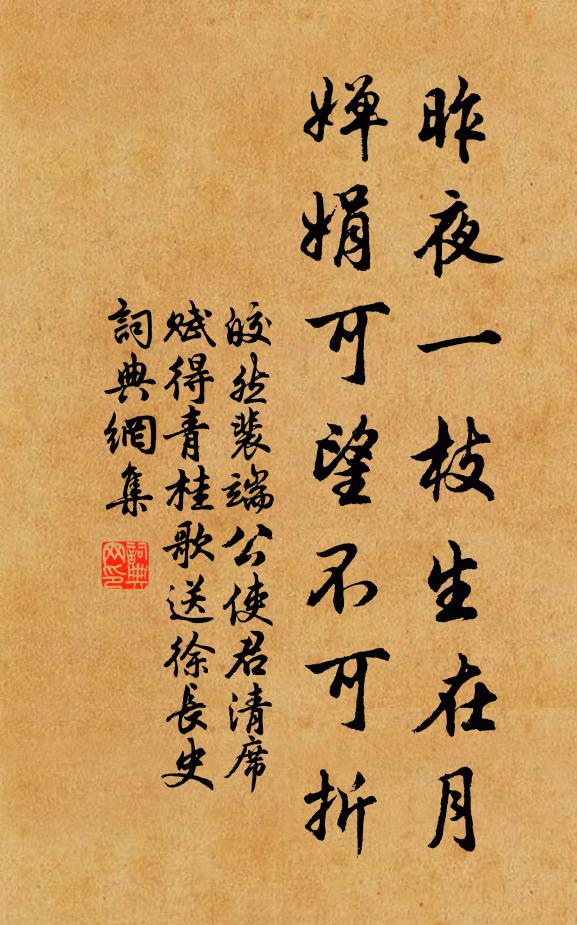 昨夜一枝生在月
嬋娟可望不可折
皎然裴端公使君清席
賦得青桂歌送徐長史
詞典網集
詞典
网印